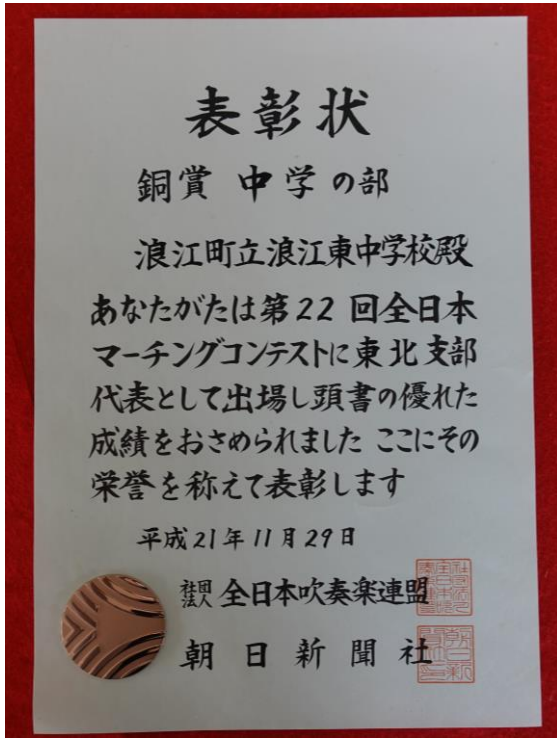 表彰状
銅賞 中学の部
浪江町立浪江東中学校殿
あなたがたは第22回全日本
マーチングコンテストに東北支部
代表として出場し頭書の優れた
成績をおさめられました ここにその
栄誉を称えて表彰します
平成21年11月29日
社団法人 全日本吹奏楽連盟
朝日新聞社